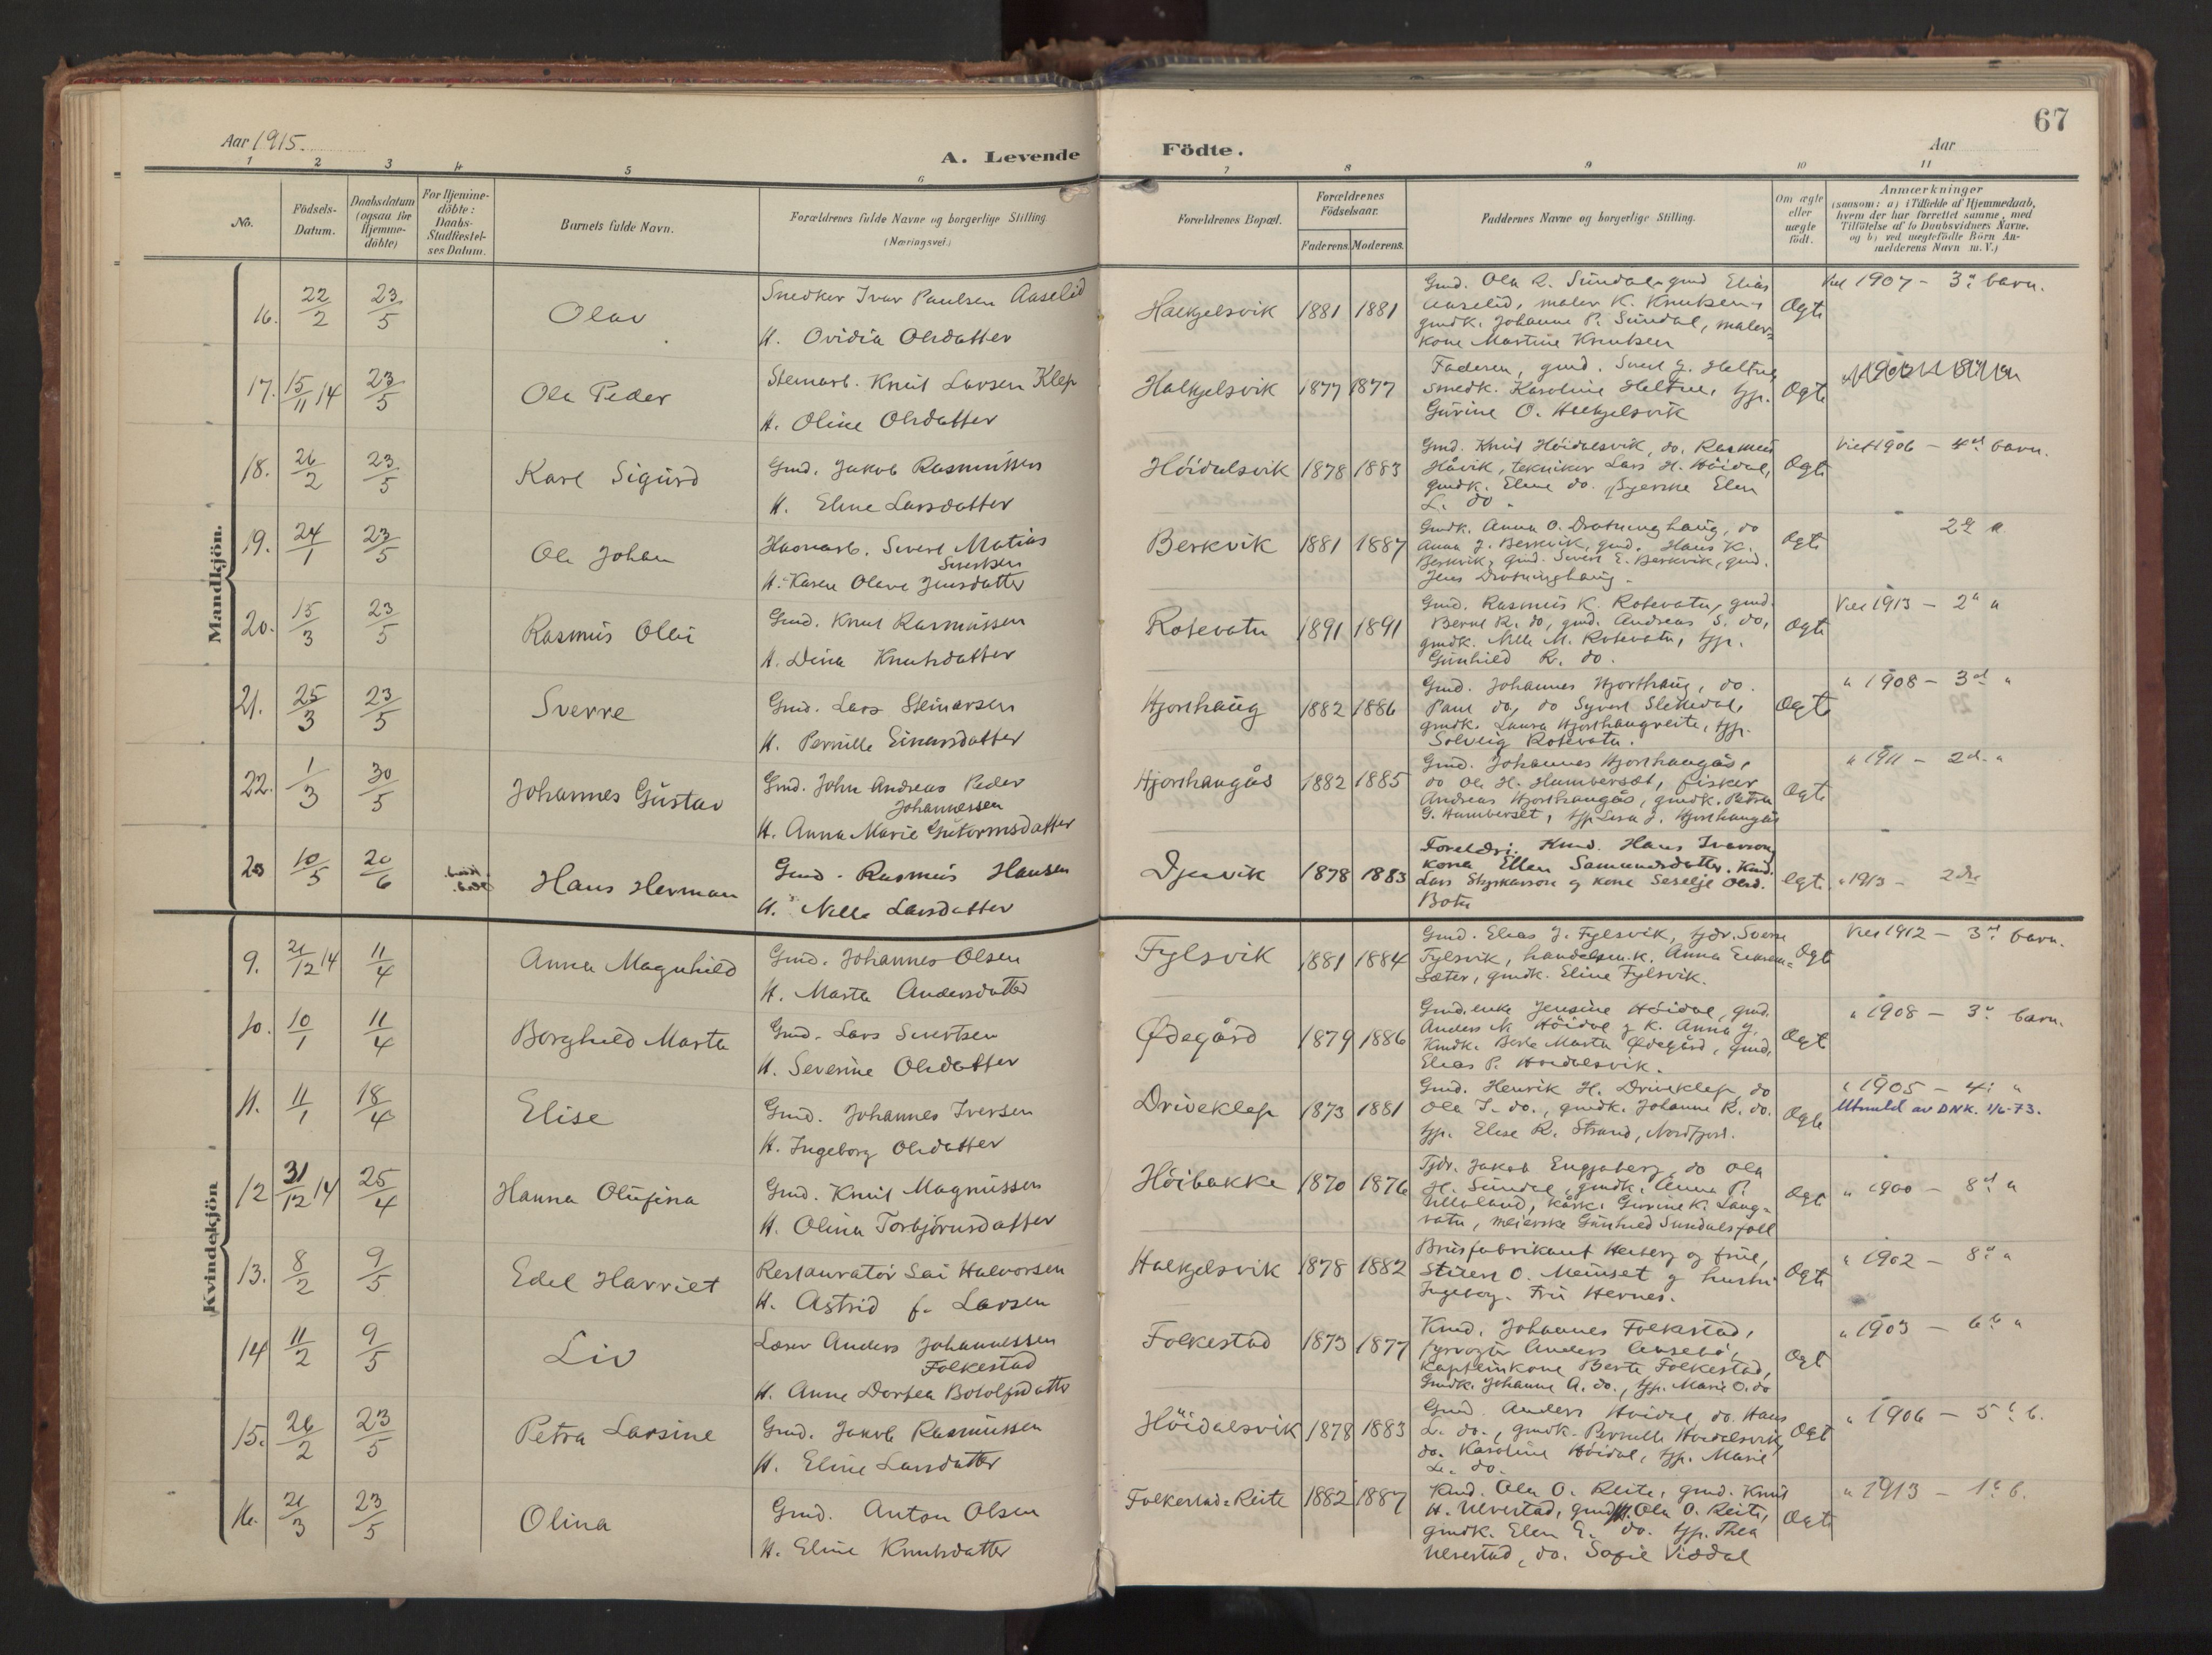 67
Aar 1915.
A. Levende
Födte.
Aar
1 2 3 4 5 6 7 8 9 10 11
No.
Födsels-
Datum.
Daabsdatum
(ogsaa for
Hjemme-
döbte)
For Hjemme-
döbte:
Daabs-
Stadfestel-
ses Datum.
Barnets fulde Navn.
Forældrenes fulde Navne og borgerlige Stilling
(Næringsvei.)
Forældrenes Bopæl.
Forældrenes
Födselsaar.
Faderens. Moderens.
Faddernes Navne og borgerlige Stilling.
Om ægte
eller
uægte
født.
Anmærkninger
(saasom: a) i Tilfælde af Hjemmedaab,
hvem der har forrettet samme, med
Tilföielse af to Daabsvidners Navne.
og b) ved uægtefödte Börn An-
melderens Navn m. V.)
Mandkjön.
16. 22/2 23/5 Olav
Snedker Ivar Paulsen Aaselid
H. Ovidia Olsdatter
1881 1881
Gmd. Ola R. Sundal, gmd Elias
Aaselid, maler K. Knutsen,
gmdk. Johanne P. Sundal, maler-
kone Martine Knutsen
Ogte
1907 - 3. barn.
17. 15/11 14 23/5 Ola Peder
Stenarb. Knut Larsen Klep
H. Oline Olsdatter
Halkjelsvik 1877 1877
Faderen, gmd. Sivert J. Heltne,
smedk. Karoline Heltne, tjp.
Gurine O. Halkjelsvik
Ogte
18. 26/2 23/5 Karl Sigurd
Gmd. Jakob Rasmussen
H. Eline Larsdatter
Höidalsvik 1878 1883
Gmd. Knut Höidalsvik, do. Rasmus
Håvik, tekniker Lars H. Höidal,
gmdk. Eline do. Syerske Elen
L. do.
Ogte
Viet 1906 - 4d barn.
19. 24/1 23/5 Ole Johan
Havnarb. Sivert Matias
Sivertsen
H. Karen Olave Jensdatter
Berkvik 1881 1887
Gmdk. Anna O. Drotninghaug, do
Anna J. Berkvik, gmd. Hans K.
Berkvik, Gmd. Sivert E. Berkvik, gmd.
Jens Drotninghaug.
Ogte
20. 15/3 23/5 Rasmus Olai
Gmd. Knut Rasmussen
H. Dina Knutsdatter
Rotevatn 1891 1891
Gmd. Rasmus K. Rotevatn, gmd.
Bernt R. do, gmd. Andreas S. do,
gmdk. Nelle M. Rotevatn, tjp.
Gunhild R. do.
Ogte
Viet 1913 - 2d "
21. 25/3 23/5 Sverre
Gmd. Lars Steinarsen
H. Pernille Einarsdatter
Hjorthaug 1882 1886
Gmd. Johannes Hjorthaug, do.
Paul do, do Syvert Slettedal,
gmdk. Laura Hjorthaugreite, tjp.
Solveig Rotevatn.
Ogte
" 1908 - 3d "
22. 1/3 30/5 Johannes Gustav
Gmd. John Andreas Peder
Johannessen
H. Anna Marie Gutormsdatter
Hjorthaugås 1882 1885
Gmd. Johannes Hjorthaugås,
do Ole H. Humberset, fisker
Andreas Hjorthaugås, gmdk. Petra
G. Humberset, tjp. Lisa J. Hjorthaugås
Ogte
" 1911 - 2d. "
23 10/5 20/6 Hans Herman
Gmd. Rasmus Hansen
H. Nelle Larsdatter
Djuvik 1878 1883
Foreldri. Kmd. Hans Iverson
kona Ellen Samundsdatter. Kmd.
Lars Styrkarson og kone Seselje Olsd.
Botn
egte
" 1913 - 2dre
Kvindekjön
9. 21/12 14 11/4 Anna Magnhild
Gmd. Johannes Olsen
H. Marta Andersdatter
Fylsvik 1881 1884
Gmd. Elias J. Fylsvik, tjdr. Sverre
Fylsvik, handelsm.k. Anna Eiksem-
sæter, gmdk. Eline Fylsvik.
Ogte
Viet 1912 - 3d barn.
10. 10/1 11/4 Borghild Marta
Gmd. Lars Sivertsen
H. Severine Olsdatter
Ødegård 1879 1886
Gmd.enke Jensine Höidal, gmd.
Anders N. Höidal og k. Anna J.
Kmdk. Berte Marta Ødegård, gmd.
Elias P. Hoidalsvik.
Ogte
" 1908 - 3d barn.
11. 11/1 18/4 Elise
Gmd. Johannes Iversen
H. Ingeborg Olsdatter
Driveklep 1873 1881
Gmd. Henrik H. Driveklep, do
Ola I. do., gmdk. Johanne R. do.
tjp. Elise R. Strand, Nordfjord.
Ogte
" 1905 - 4. "
Utmeld av DNK. 1/6-73.
12 31/12 14 25/4 Hanna Olufina
Gmd. Knut Magnussen
H. Olina Torbjörnsdatter
Höibakke 1870 1876
Tjdr. Jakob Engjaberg, do Ola
H. Sundal, gmdk. Anna P.
Ulleland, kårk. Gurine K. Lang-
vatn, meierske Gunhild Sundalsfoll
Ogte
" 1900 - 8d "
13. 8/2 9/5 Edel Harriet
Restauratör Sai Halvorsen
H. Astrid f. Larsen
Halkjelsvik 1878 1882
Brusfabrikant Herberg og frue,
O. Meinset og hustru
Ingeborg. Fru Hernes.
Ogte
" 1902 - 8d "
14 11/2 9/5 Liv
Lærer Anders Johannessen
Folkestad
H. Anne Dortea Botolfsdatter
Folkestad 1873 1877
Kmd. Johannes Folkestad,
fyrvogter Anders Aasebö,
kapteinkone Berte Folkestad,
Gmdk. Johanne A. do., tjp. Marie O. do
Ogte
" 1903 - 6te "
15. 26/2 23/5 Petra Larsine
Gmd. Jakob Rasmussen
H. Eline Larsdatter
Höidalsvik 1878 1883
Gmd. Anders Hoidal, do. Hans
L. do., gmdk. Pernille Hoidalsvik,
do. Karoline Höidal, tjp. Marie
L. do.
Ogte
" 1906 - 5te b.
16. 21/3 23/5 Olina
Gmd. Anton Olsen
H. Eline Knutsdatter
Folkestad-Reite 1882 1887
Kmd. Ola O. Reite, gmd. Knut
H. Ulvestad, gmd. Ola O. Reite,
gmdk. Elen E. do. tjp. Thea
Ulvestad, do. Sofie Viddal
Ogte
" 1913 - 1te b.